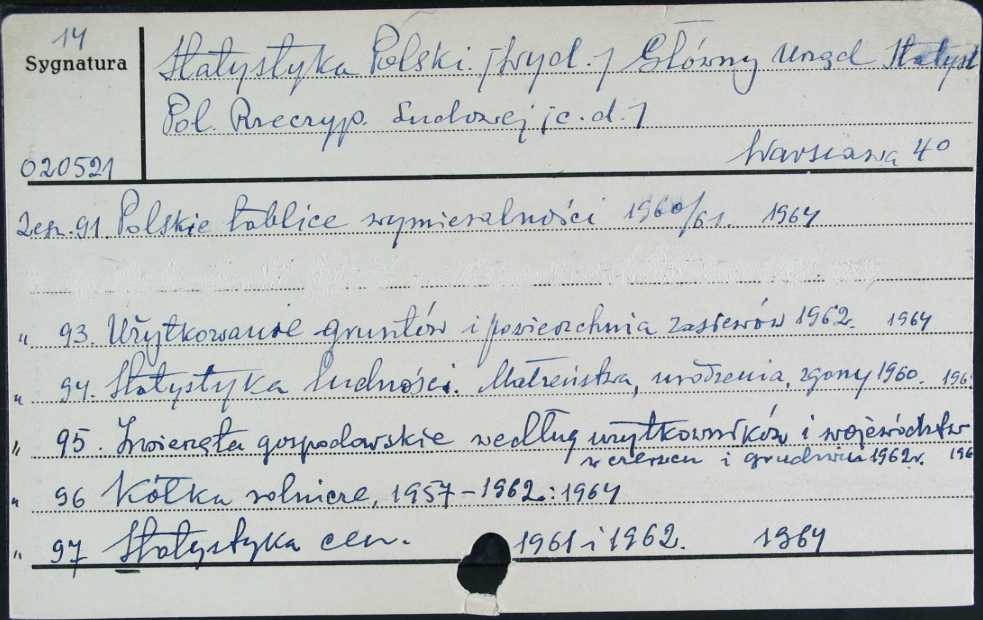 14
Sygnatura
020521
Statystyka Polski. [wyd.] Główny Urząd Statyst
Pol. Rzeczyp. Ludowej [c.d.]
Warszawa 40
Zesz. 91 Polskie tablice wymieralności 1960/61. 1964
„ 93. Użytkowanie gruntów i powierzchnia zasiewów 1962. 1964
„ 94. Statystyka ludności. Małżeństwa, urodzenia, zgony 1960. 196
„ 95. Zwierzęta gospodarskie według użytkowników i województw
w czerwcu i grudniu 1962 r. 196
„ 96 Kółka rolnicze, 1957-1962: 1964
„ 97 Statystyka cen. 1961 i 1962. 1964